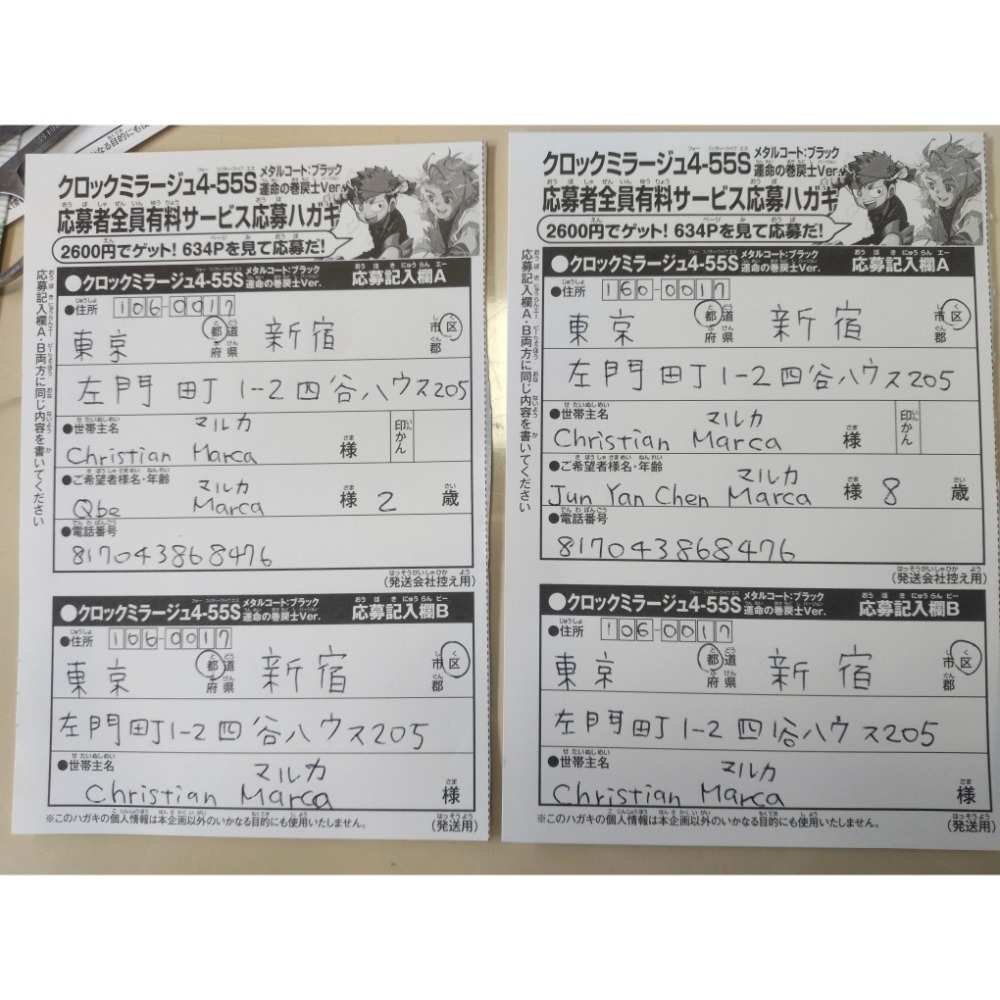 かなる目的にも使
クロックミラージュ4-55S メタルコート:ブラック 運命の巻戻士Ver.
応募者全員有料サービス応募ハガキ
2600円でゲット! 634Pを見て応募だ!
応募記入欄A・B両方に同じ内容を書いてください
●クロックミラージュ4-55S メタルコート:ブラック 運命の巻戻士Ver. 応募記入欄A
●住所 106-0017
東京 都道府県 新宿 市区郡
左門町1-2四谷ハウス205
●世帯主名 マルカ
Christian Marca 様 印かん
●ご希望者様名・年齢 マルカ
Qbe Marca 様 2 歳
●電話番号
817043868476
(発送会社控え用)
●クロックミラージュ4-55S メタルコート:ブラック 運命の巻戻士Ver. 応募記入欄B
●住所 106-0017
東京 都道府県 新宿 市区郡
左門町1-2四谷ハウス205
●世帯主名 マルカ
Christian Marca 様
※このハガキの個人情報は本企画以外のいかなる目的にも使用いたしません。 (発送用)
クロックミラージュ4-55S メタルコート:ブラック 運命の巻戻士Ver.
応募者全員有料サービス応募ハガキ
2600円でゲット! 634Pを見て応募だ!
応募記入欄A・B両方に同じ内容を書いてください
●クロックミラージュ4-55S メタルコート:ブラック 運命の巻戻士Ver. 応募記入欄A
●住所 160-0017
東京 都道府県 新宿 市区郡
左門町1-2四谷ハウス205
●世帯主名 マルカ
Christian Marca 様 印かん
●ご希望者様名・年齢 マルカ
Jun Yan Chen Marca 様 8 歳
●電話番号
817043868476
(発送会社控え用)
●クロックミラージュ4-55S メタルコート:ブラック 運命の巻戻士Ver. 応募記入欄B
●住所 106-0017
東京 都道府県 新宿 市区郡
左門町1-2四谷ハウス205
●世帯主名 マルカ
Christian Marca 様
※このハガキの個人情報は本企画以外のいかなる目的にも使用いたしません。 (発送用)